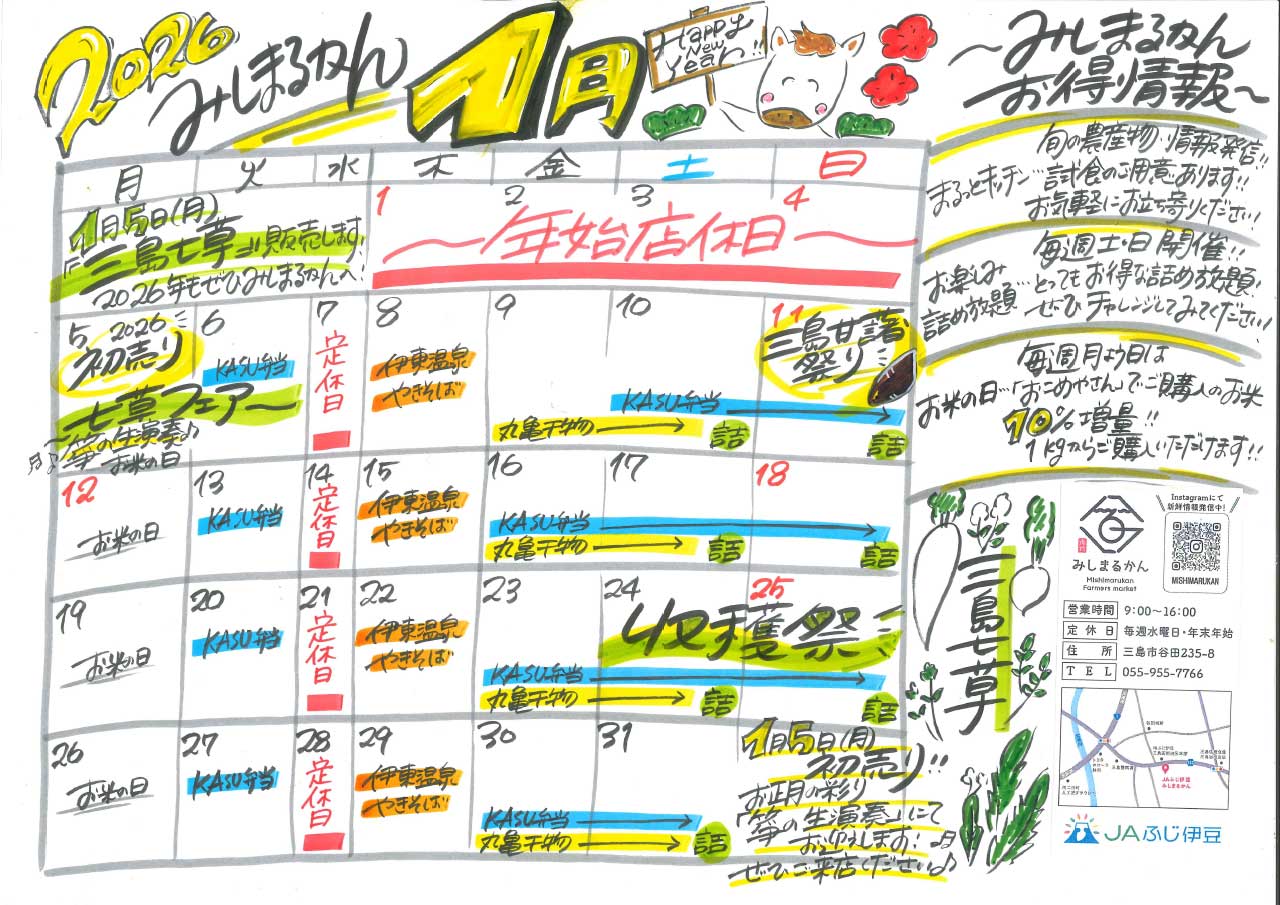 2026 みしまるかん 1月
Happy New Year!!
月 火 水 木 金 土 日
1月5日(月)
「三島七草」販売します!
2026年もぜひみしまるかんへ!
1 2 3 4
〜年始店休日〜
5 2026
初売り
七草フェア〜
〜箏の生演奏♪
お米の日
6
KASU弁当
7
定休日
8
伊東温泉
やきそば
9
10
KASU弁当
丸亀干物
詰
11
三島甘藷
祭り
詰
12
お米の日
13
KASU弁当
14
定休日
15
伊東温泉
やきそば
16
17
18
KASU弁当
丸亀干物
詰
詰
19
お米の日
20
KASU弁当
21
定休日
22
伊東温泉
やきそば
23
24
25
収穫祭!
KASU弁当
丸亀干物
詰
詰
26
お米の日
27
KASU弁当
28
定休日
29
伊東温泉
やきそば
30
31
KASU弁当
丸亀干物
詰
1月5日(月)
初売り!!
お正月の彩り
「箏の生演奏」にて
お迎えします!♪
ぜひご来店ください♪
〜みしまるかん
お得情報〜
旬の農産物・情報発信!!
まるっとキッチン…試食のご用意あります!!
お気軽にお立ち寄りください!
毎週土・日開催!!
お楽しみ
詰め放題…とってもお得な詰め放題!
ぜひチャレンジしてみてください!
毎週月よう日は
お米の日…「おこめやさん」でご購入のお米
10%増量!!
1kgからご購入いただけます!!
三島七草
みしまるかん
Mishimarukan
Farmers market
Instagramにて
新鮮情報発信中!
MISHIMARUKAN
営業時間 9:00〜16:00
定休日 毎週水曜日・年末年始
住所 三島市谷田235-8
TEL 055-955-7766
JAふじ伊豆
みしまるかん
JAふじ伊豆